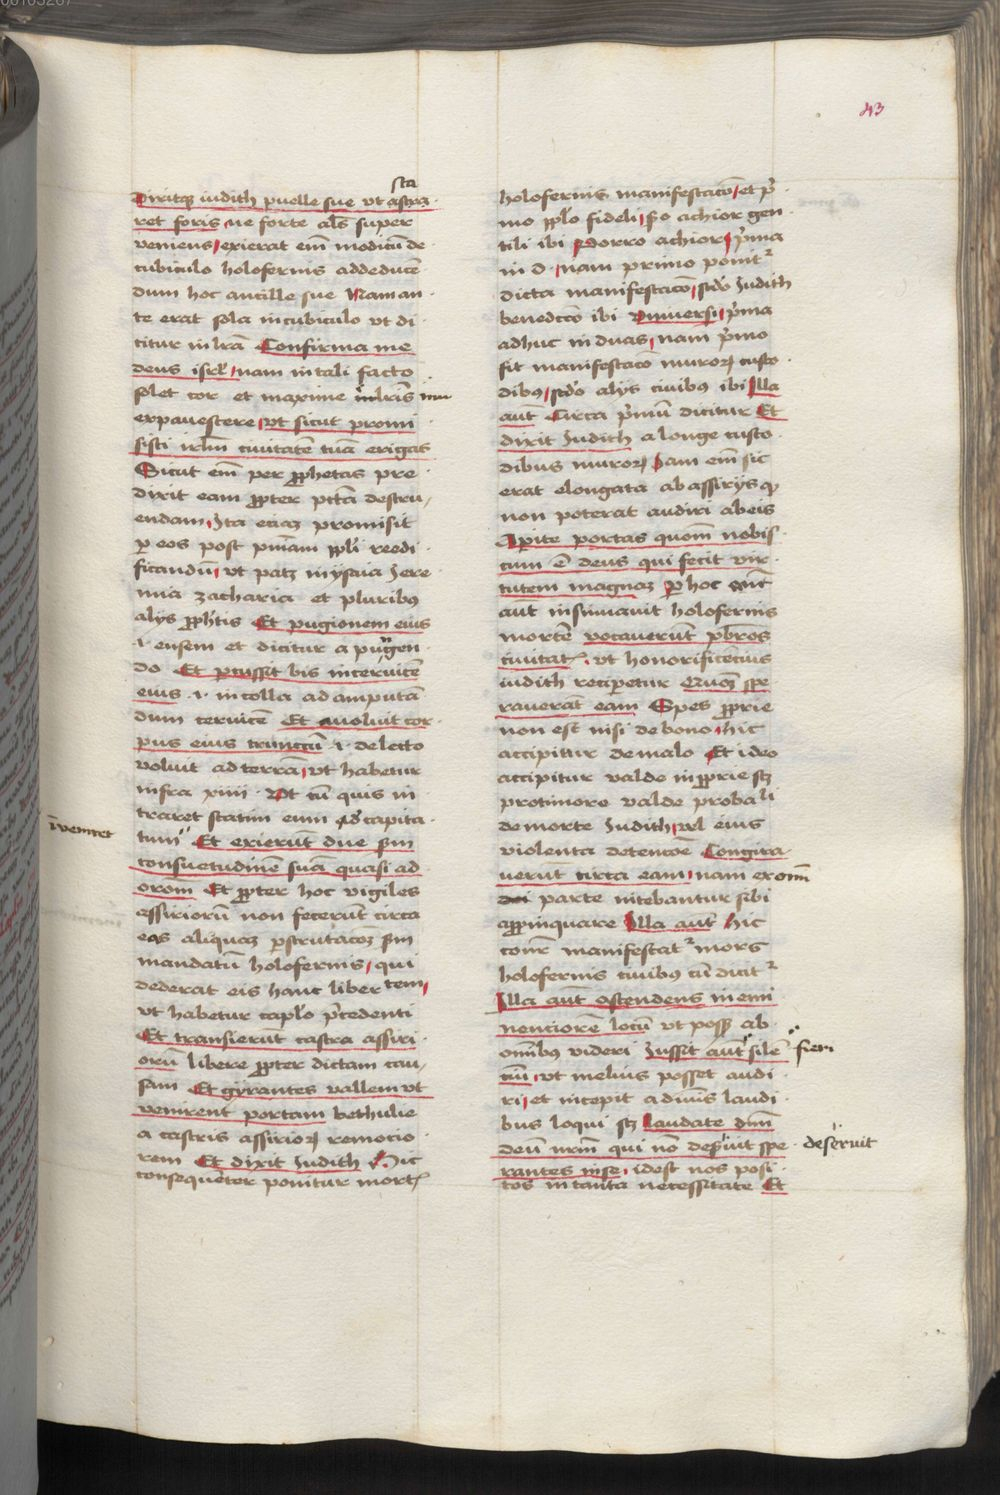 43
sta
Dixitq iudith puelle sue vt astaꝫ
ret foris ne forte alſ super
veniens exierat em̄ modicū de
cubiculo holofernis addeducē
dum hoc ancille sue Nam an
te erat sola in cubiculo vt di
citur in lr̄a Confirma me
deus isrl̓ nam in tali facto
solet cor et maxime mulīris
expavescere vt sicut promi
sisti irlm̄ civitatē tuā erigas
Sicut em̄ per ꝓphetas pre
dixit eam ꝓpter pctā destru
endam Ita eciaꝫ promisit
ꝑ eos post pniam ppl̓i reedi
ficandū vt patꝫ in ysaia Jere
mia zacharia et pluribꝰ
alijs ꝓph̓tis Et pugionem eius
.i. ensem et dicitur a pungen
do Et ꝑcussit bis in cervicē
eius .i. in colla ad amputā
dum cervicē Et evoluit cor
pus eius truncū .i. de lecto
voluit ad terrā vt habetur
infra xiiii Vt cū quis in
traret statim eum decapita
tum Et exierūt due ẜm
invenret
consuetudinē suā quasi ad
orōm Et ꝓpter hoc vigiles
assiriorū non fecerūt circa
eas aliquaꝫ ꝑscrutacōꝫ ẜm
mandatū holofernis qui
dederat eis hanc libertatem
vt habetur capl̓o p̄cedenti
Et transierūt castra assiri
orū libere ꝓpter dictam cau
sam Et gyrantes vallem vt
venirent portam bethulie
a castris assirioꝝ remocio
rem Et dixit Iudith Hic
consequenter ponitur mortꝭ
holofernis manifestacō et p̄
mo ppl̓o fideli ẜo achior gen
tili ibi Porro achior p̄ma
in d nam primo ponitᷣ
dicta manifestacō scd̓o Iudith
benedcc̄o ibi Universi p̄ma
adhuc in duas nam p̄mo
fit manifestacō muroꝝ custo
dibꝰ scd̓o alijs civibꝰ ibi Illa
aut̄ Circa p̄mū dicitur Et
dixit Iudith a longe custo
dibus muroꝝ Iam em̄ sic
erat elongata ab assirijs qꝫ
non poterat audiri ab eis
Apite portas quom̄ nobis
cum ē deus qui fecit vir
tutem magnaꝫ ꝑ hoc
aut̄ insinuavit holofernis
mortē vocaverūt pb̄ros
civitatꝭ vt honorificencius
iudith reciperetur Quoꝫ spe
raverāt eam Spes ꝓprie
non est nisi de bono hic
accipitur de malo Et ideo
accipitur valde inꝓprie scꝫ
pro timore valde probabili
de morte Iudith vel eius
violenta detencōe Congira
verūt circa eam nam ex omī
parte nitebantur sibi
appropinquare Illa aut̄ Hic
comr̄ manifestatᷣ mors
holofernis civibꝰ cū dicitᷣ
Illa aut̄ ascendens in emi
nenciorē locū vt possꝫ ab
omībꝰ videri Iussit aut̄ silē
fieri
ciū vt melius posset audi
ri et incepit a divīs laudi
bus loqui scꝫ Laudate dnm̄
deū nrm̄ qui nō deseruit spe
deseruit
rantes in se id est nos posi
tos in tanta necessitate Et